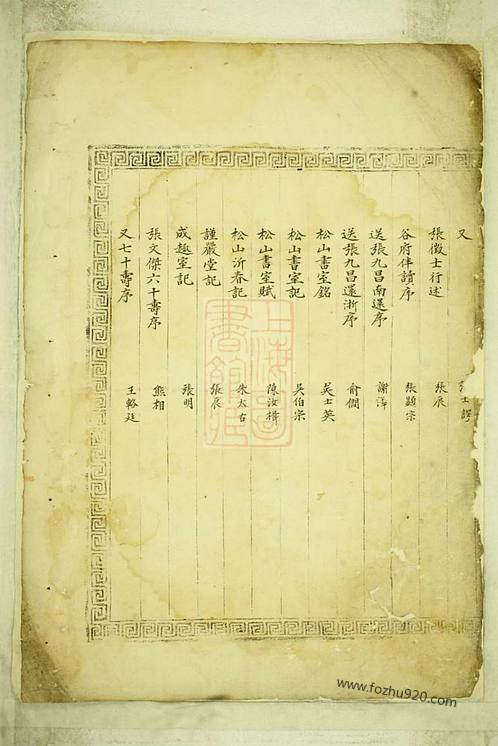 又 士諤
張徵士行述 張辰
谷府伴讀序 張顯宗
送張九昌南還序 謝津
送張九昌還浙序 俞僩
松山書室銘 吳士英
松山書室記 吳伯宗
松山書室賦 陳汝楫
松山沂春記 朱太古
謹嚴堂記 張辰
成趣室記 張明
張文傑六十壽序 熊相
又七十壽序 王輅廷
上海圖書館藏
www.fozhu920.com